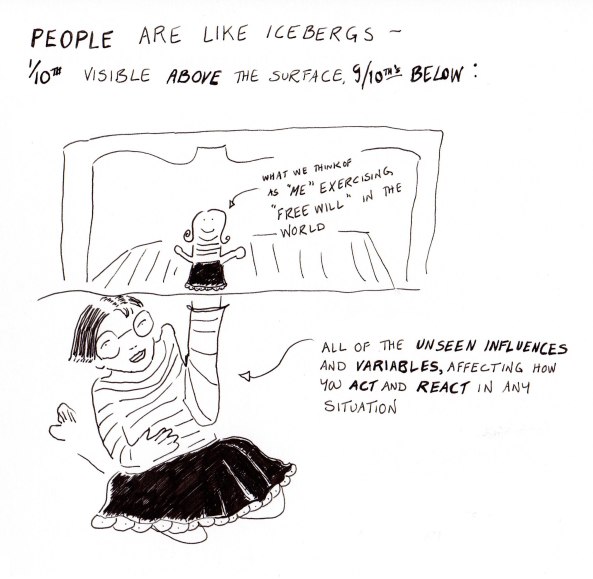 PEOPLE ARE LIKE ICEBERGS -
1/10TH VISIBLE ABOVE THE SURFACE, 9/10TH'S BELOW:
WHAT WE THINK OF
AS "ME" EXERCISING
"FREE WILL" IN THE
WORLD
ALL OF THE UNSEEN INFLUENCES
AND VARIABLES, AFFECTING HOW
YOU ACT AND REACT IN ANY
SITUATION